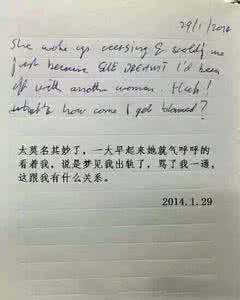 29/1/2014
She woke up cursing & scold me
just because SHE DREAMT I'd been
off with another woman. Huh!
what & how come I get blamed?
太莫名其妙了，一大早起来她就气呼呼的
看着我，说是梦见我出轨了，骂了我一通，
这跟我有什么关系。
2014.1.29